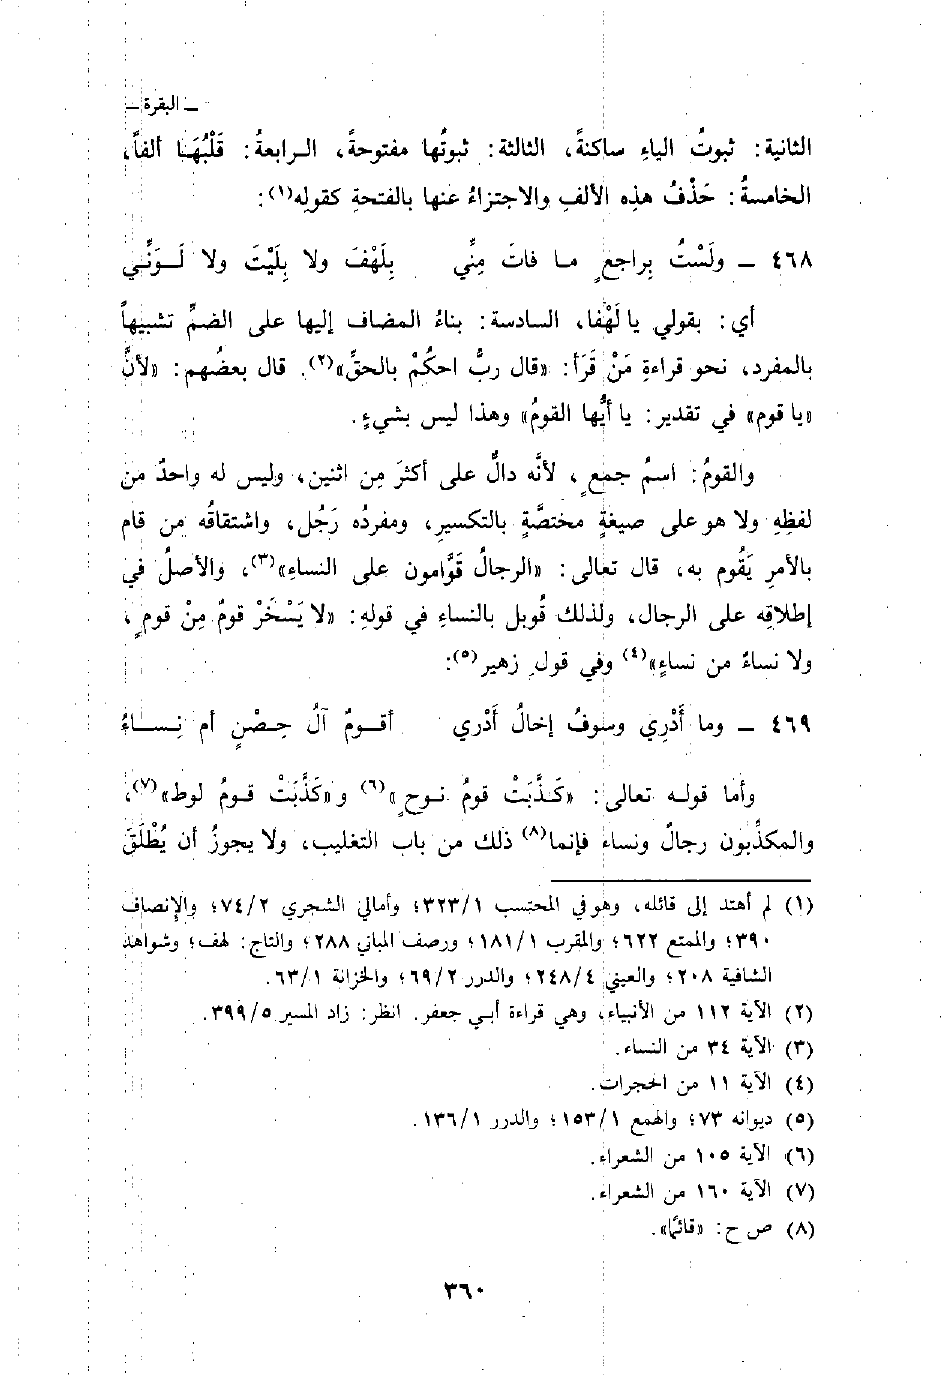 ـ البقرة ـ
الثانية: ثبوتُ الياءِ ساكنةً، الثالثة: ثبوتُها مفتوحةً، الرابعةُ: قَلْبُهَا ألفاً،
الخامسةُ: حَذْفُ هذه الألفِ والاجتزاءُ عنها بالفتحةِ كقولِه(١):
٤٦٨ ـ ولَسْتُ بِراجعٍ ما فاتَ مِنِّي بِلَهْفَ ولا بِلَيْتَ ولا لَوَنِّي
أي: بقولي يا لَهْفا، السادسة: بناءُ المضاف إليها على الضمِّ تشبيهاً
بالمفرد، نحو قراءةِ مَنْ قَرَأَ: «قال ربُّ احكُمْ بالحقِّ»(٢). قال بعضُهم: «لأنَّ
«يا قوم» في تقدير: يا أيُّها القومُ» وهذا ليس بشيءٍ.
والقومُ: اسمُ جمعٍ، لأنَّه دالٌّ على أكثرَ مِن اثنين، وليس له واحدٌ من
لفظِهِ ولا هو على صيغةٍ مختصَّةٍ بالتكسيرِ، ومفردُه رَجُل، واشتقاقُه من قام
بالأمرِ يَقُوم به، قال تعالى: «الرجالُ قَوَّامون على النساءِ»(٣)، والأصلُ في
إطلاقِه على الرجال، ولذلك قُوبل بالنساءِ في قولِهِ: «لا يَسْخَرْ قومٌ مِنْ قومٍ،
ولا نساءٌ من نساءٍ»(٤) وفي قولِ زهير(٥):
٤٦٩ ـ وما أَدْرِي وسوفُ إخالُ أَدْري أقومٌ آلُ حِصْنٍ أم نِساءُ
وأما قوله تعالى: «كَذَّبَتْ قومُ نوحٍ»(٦) و«كَذَّبَتْ قومُ لوط»(٧)،
والمكذِّبون رجالٌ ونساء فإنما(٨) ذلك من باب التغليب، ولا يجوزُ أن يُطْلَقَ
(١) لم أهتد إلى قائله، وهو في المحتسب ٣٢٣/١؛ وأمالي الشجري ٧٤/٢؛ والإنصاف
٣٩٠؛ والممتع ٦٢٢؛ والمقرب ١٨١/١؛ ورصف المباني ٢٨٨؛ والتاج: لهف؛ وشواهد
الشافية ٢٠٨؛ والعيني ٢٤٨/٤؛ والدرر ٦٩/٢؛ والخزانة ٦٣/١.
(٢) الآية ١١٢ من الأنبياء، وهي قراءة أبي جعفر. انظر: زاد المسير ٣٩٩/٥.
(٣) الآية ٣٤ من النساء.
(٤) الآية ١١ من الحجرات.
(٥) ديوانه ٧٣؛ والهمع ١٥٣/١؛ والدرر ١٣٦/١.
(٦) الآية ١٠٥ من الشعراء.
(٧) الآية ١٦٠ من الشعراء.
(٨) ص ح: «قائماً».
٣٦٠